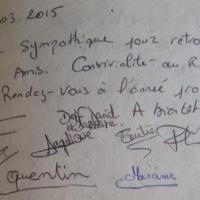 03.2015
Sympathique pour retro
Amis. Convivialité au R
Rendez-vous à l'année pro
A bientôt
Delf David
Angélique Emilie
Quentin